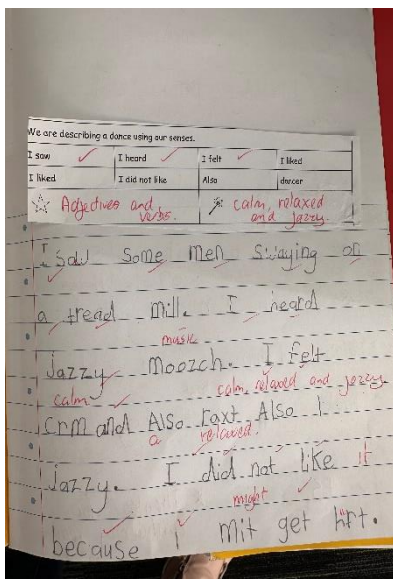 We are describing a dance using our senses.
I saw I heard I felt I liked
I liked I did not like Also dancer
Adjectives and verbs. calm, relaxed and jazzy.
I saw some men swaying on
a tread mill. I heard
music
jazzy moozch. I felt
calm calm, relaxed and jazzy.
crm and Also raxt Also I
a relaxed.
jazzy. I did not like it
might
because I mit get hrt.